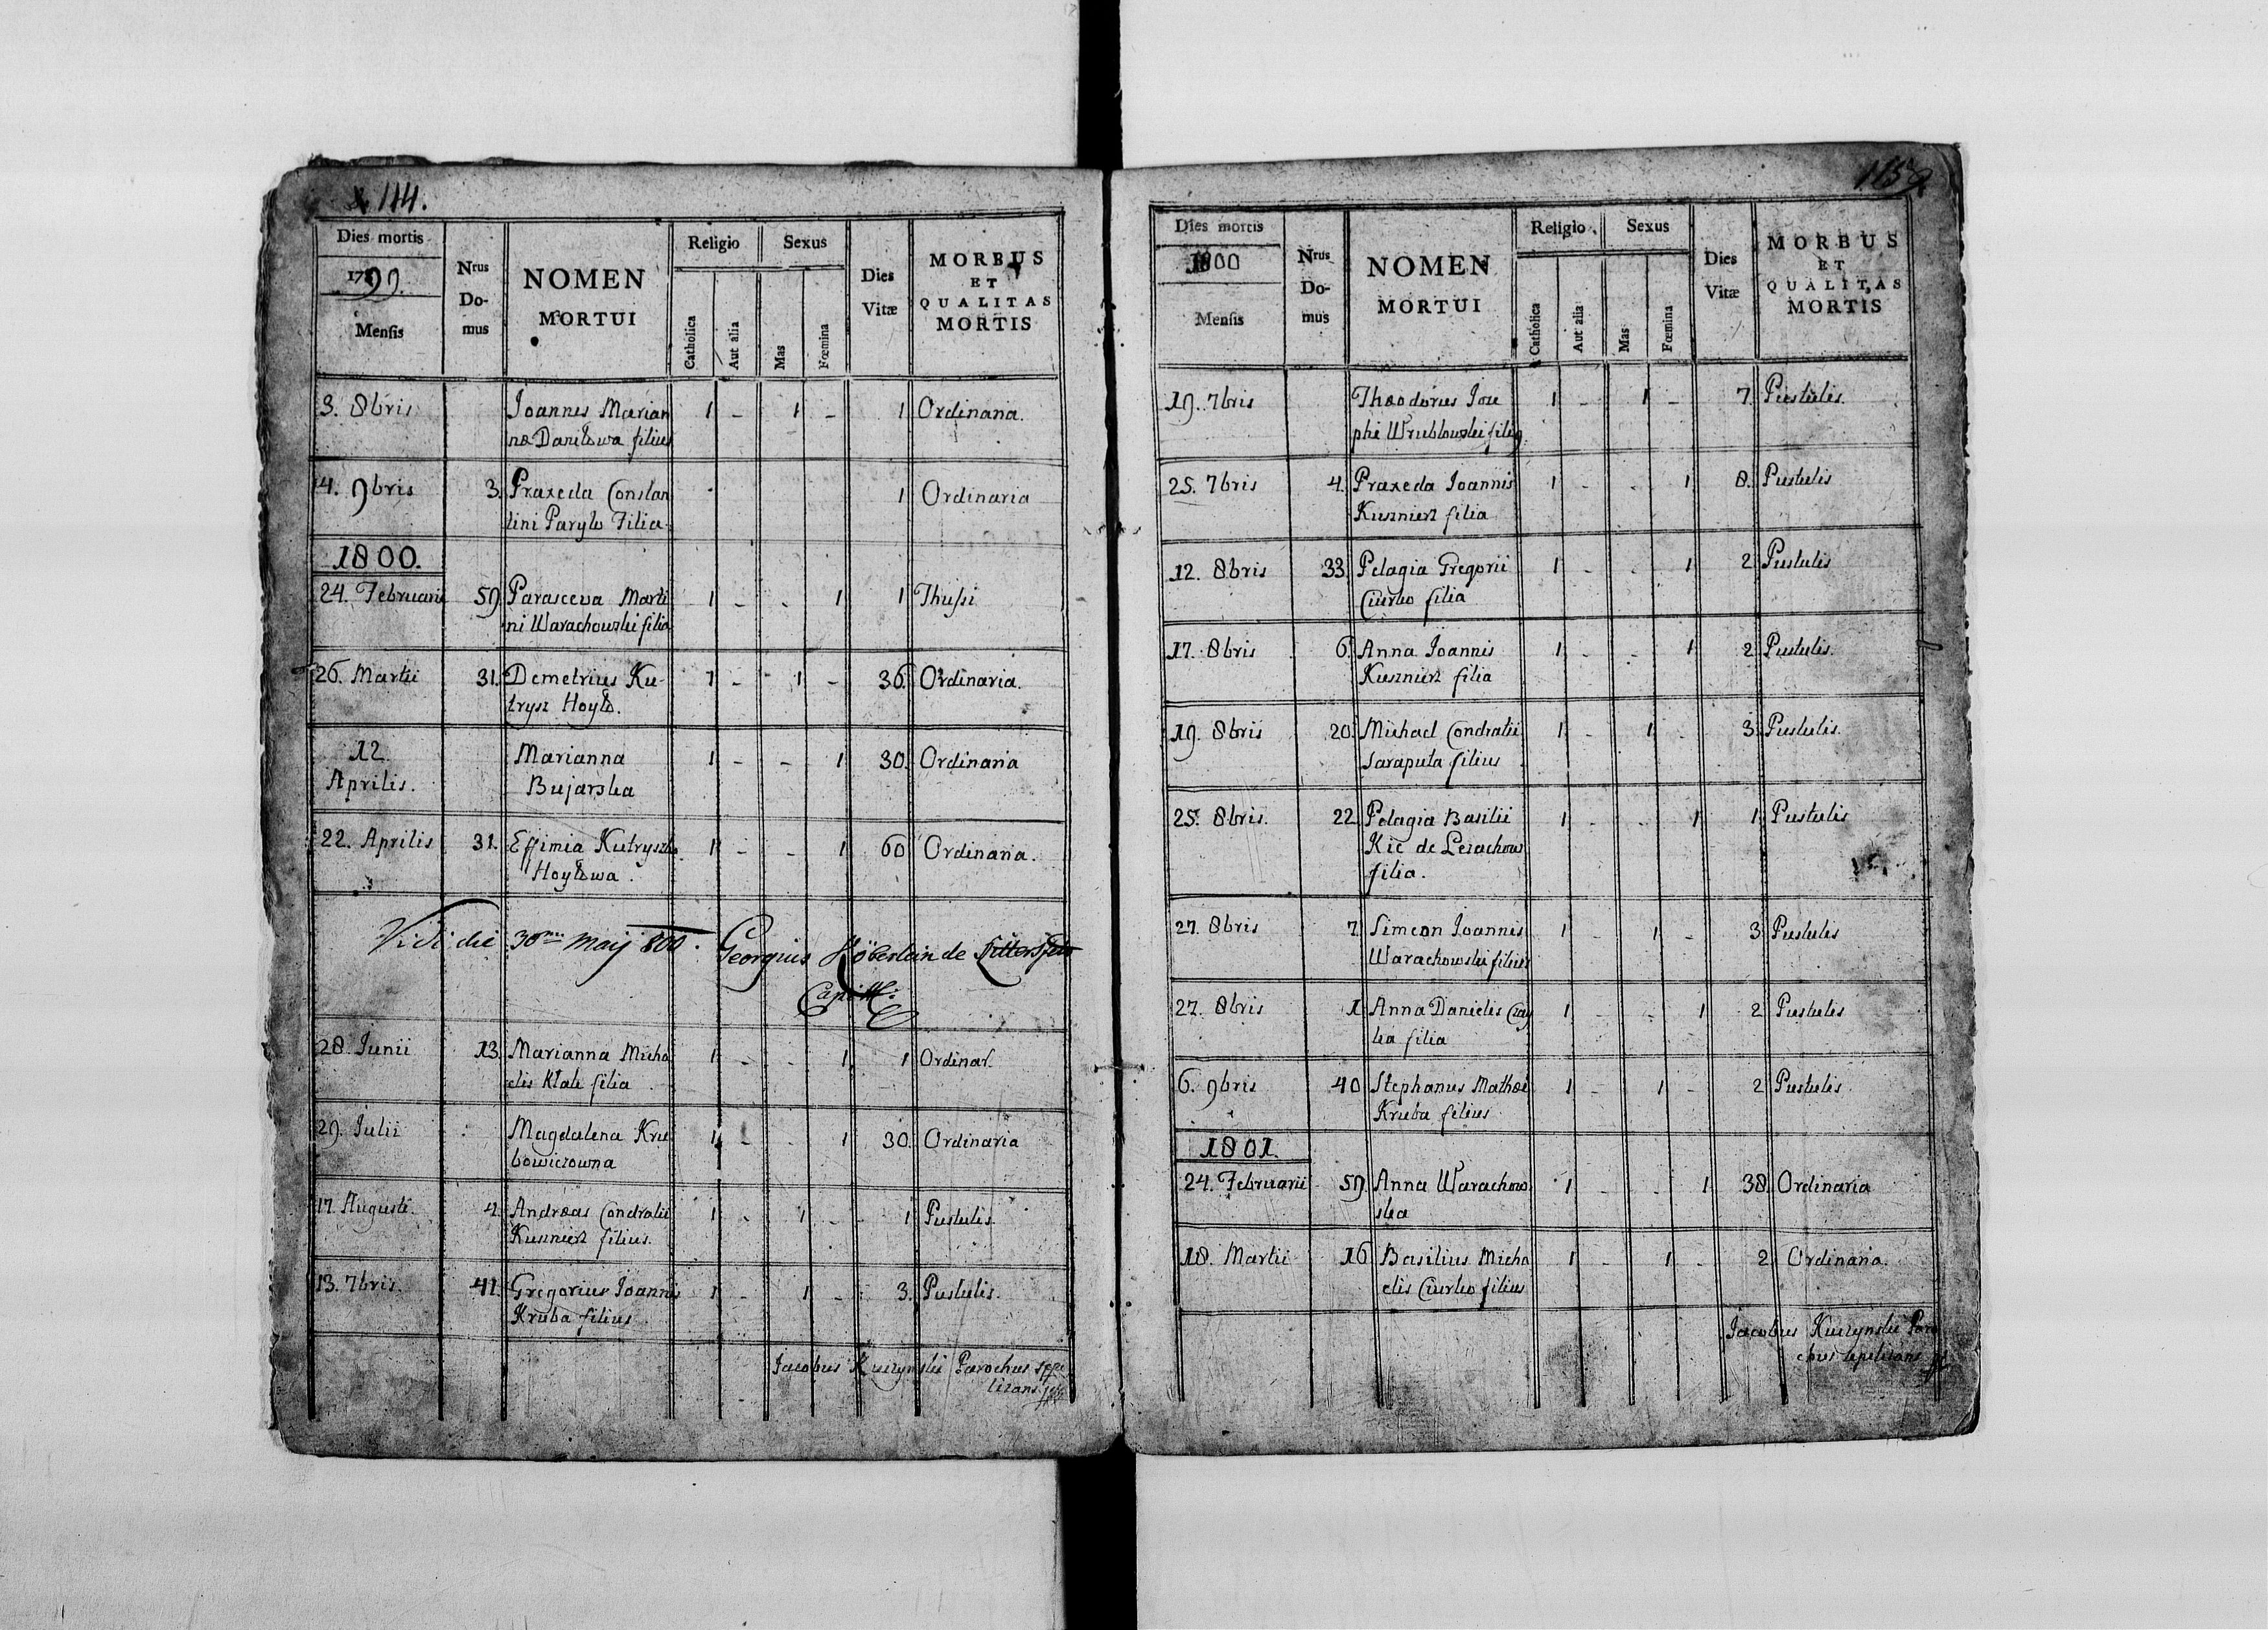 114.
Dies mortis
1799.
Mensis
Nrus Do-
mus
NOMEN
MORTUI
Religio
Catholica
Aut alia
Sexus
Mas
Fœmina
Dies
Vitæ
MORBUS
ET
QUALITAS
MORTIS
3. 8bris Joannes Marian 1 - 1 - 1 Ordinaria.
næ Daniłowa filius
14. 9bris 3. Praxeda Constan 1 Ordinaria
tini Paryło Filia
1800.
24. Februarii 59. Parasceva Marti 1 - - 1 1 Thussi
ni Warachowski filia
26. Martii 31. Demetrius Ku- 1 - 1 - 36. Ordinaria.
trysz Hoyło.
12 Marianna 1 - - 1 30. Ordinaria
Aprilis. Bujarska
22. Aprilis 31. Effimia Kutryszka 1 - - 1 60 Ordinaria.
Hoyłowa.
Vidi die 30ma Maij 800. Georgius Höberlein de
28. Junii 13. Marianna Micha 1 - - 1 1 Ordinar.
elis Kłak filia
29. Julii Magdalena Kru 1 - - 1 30. Ordinaria
bowiczowna
17. Augusti 4. Andreas Condratii 1 - 1 - 1 Pustulis
Kusznierz filius.
13. 7bris. 41. Gregorius Joannis 1 - 1 - 3. Pustulis.
Kruba filius
Jacobus Kuczynski Parochus
115
Dies mortis
1800
Mensis
Nrus
Do-
mus
NOMEN
MORTUI
Religio
Catholica
Aut alia
Sexus
Mas
Fœmina
Dies
Vitæ
MORBUS
ET
QUALITAS
MORTIS
19. 7bris Theodorus Jose 1 - 1 - 7. Pustulis.
phi Wrublowski filius
25. 7bris 4. Praxeda Joannis 1 - - 1 8. Pustulis
Kusznierz filia
12. 8bris 33. Pelagia Gregorii 1 - - 1 2 Pustulis
Ciurko filia
17. 8bris 6. Anna Joannis 1 - - 1 2 Pustulis.
Kusznierz filia
19. 8bris 20. Michael Condratii 1 - 1 - 3. Pustulis.
Saraputa filius
25. 8bris. 22 Pelagia Basilii 1 - - 1 1 Pustulis
Kic de Lezachow
filia.
27. 8bris 7. Simeon Joannis 1 - 1 - 3 Pustulis
Warachowski filius
27. 8bris 1 Anna Danielis Czay 1 - - 1 2 Pustulis
ka filia
6. 9bris 40 Stephanus Mathæi 1 - 1 - 2 Pustulis
Kruba filius
1801.
24. Februarii 59. Anna Warachow 1 - - 1 38. Ordinaria
ska
18. Martii 16 Basilius Micha 1 - 1 - 2. Ordinaria.
elis Ciurko filius
Jacobus Kuczynski Paro
chus